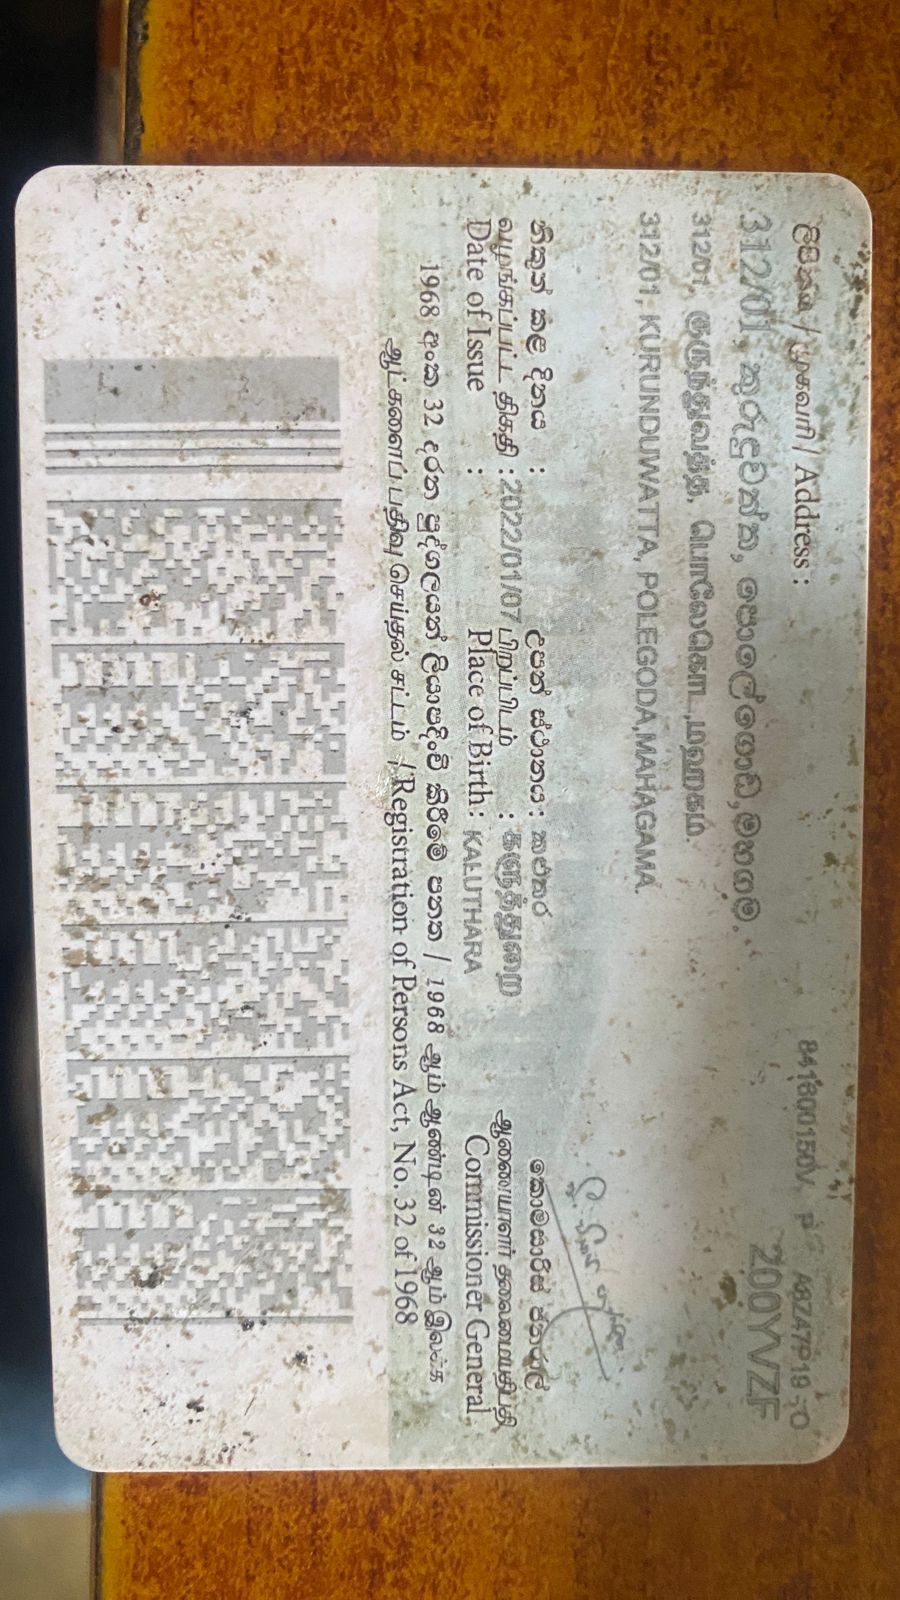 ලිපිනය / முகவரி / Address :
841600150V
312/01, කුරුදුවත්ත, පොල්ගොඩ,මහගම.
200YVZF
312/01, குருந்துவத்த, பொலேகொட ,மஹகம்.
312/01, KURUNDUWATTA, POLEGODA,MAHAGAMA.
නිකුත් කළ දිනය :
வழங்கப்பட்ட திகதி : 2022/01/07
Date of Issue :
උපන් ස්ථානය : කළුතර
பிறப்பிடம் : களுத்துறை
Place of Birth : KALUTHARA
කොමසාරිස් ජනරාල්
ஆணையாளர் தலைமையதிபதி
Commissioner General
1968 අංක 32 දරන පුද්ගලයන් ලියාපදිංචි කිරීමේ පනත / 1968 ஆம் ஆண்டின் 32 ஆம் இலக்க
ஆட்களைப் பதிவு செய்தல் சட்டம் / Registration of Persons Act, No. 32 of 1968